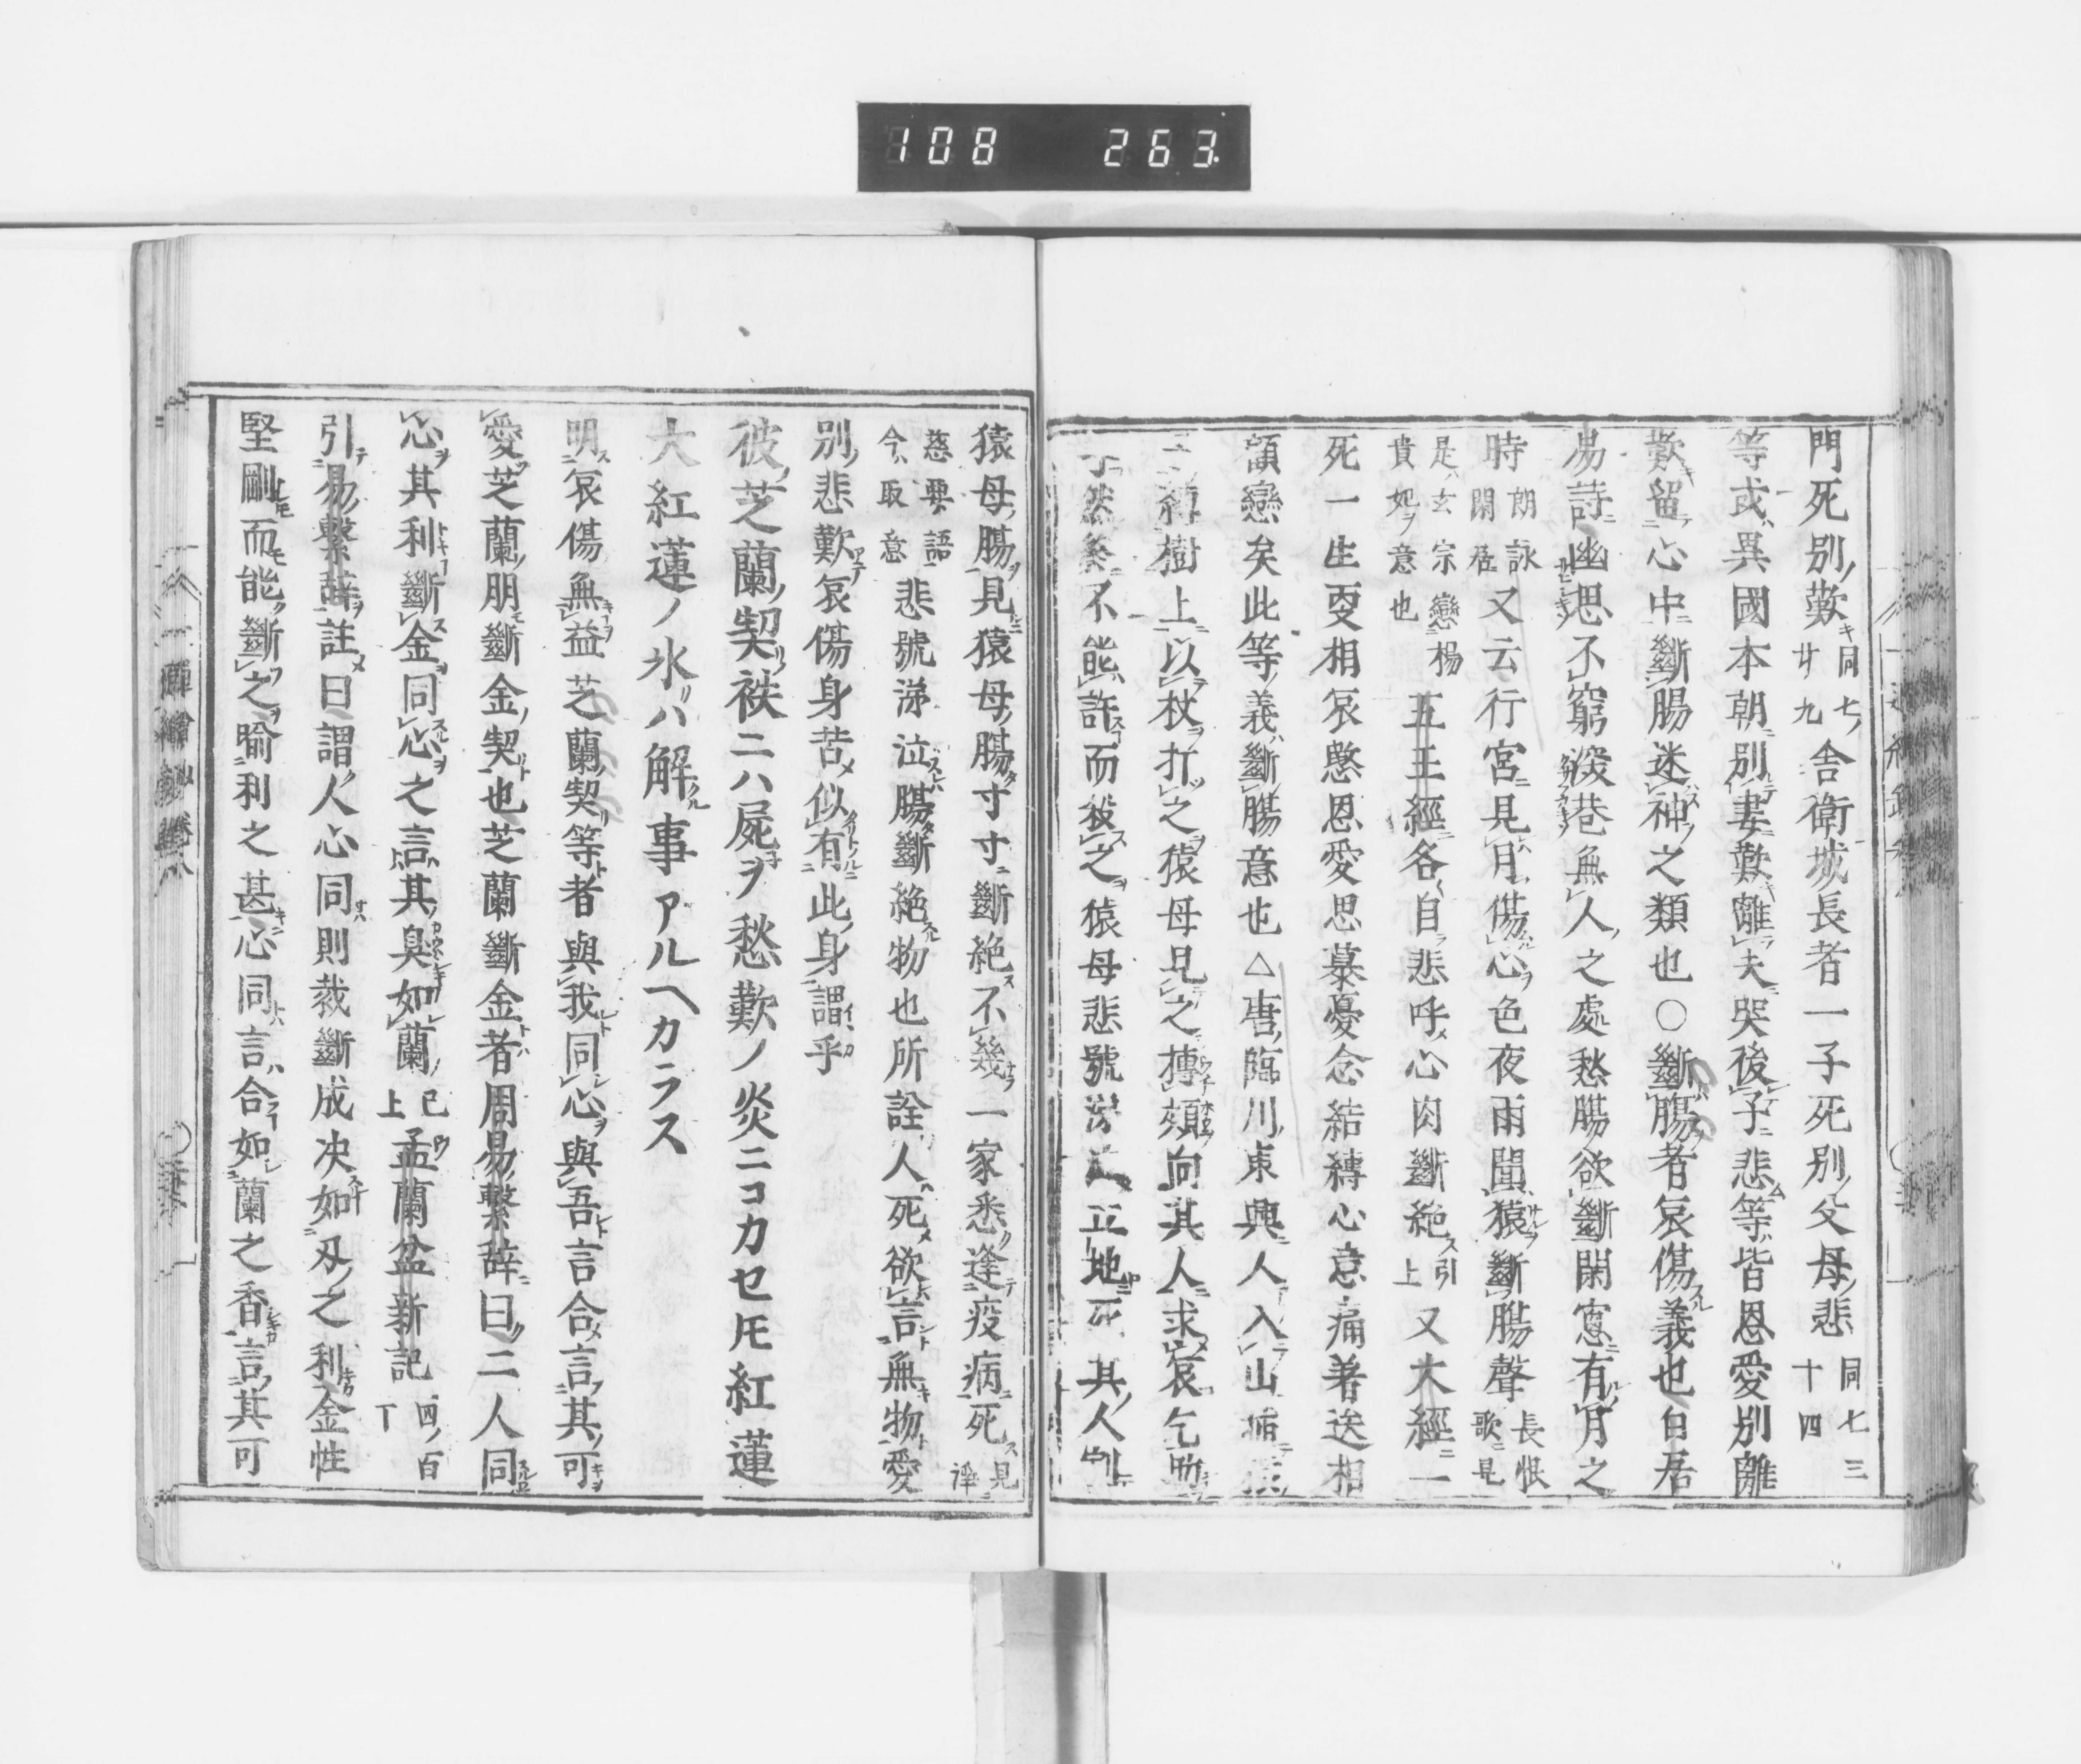 108 263
門死別歎同七廿九舎衛城長者一子死別父母悲同七三十四
等或異國本朝別妻歎離夫哭後子悲等皆恩愛別離
歎留心中斷腸迷神之類也○斷腸者哀傷義也白居
易詩幽思不窮深巷無人之處愁腸欲斷閑窓有月之
時朗詠閑居又云行宮見月傷心色夜雨聞猿斷腸聲長恨歌見
是玄宗戀楊貴妃意也五王經各自悲呼心肉斷絶引上又大經一
死一生更相哀慜恩愛思慕憂念結縛心意痛著迭相
顧戀矣此等義斷腸意也△唐臨川東興人入山捕
縛樹上以杖打之猿母見之摶頰向其人求哀乞助
不能許而殺之猿母悲號立地死其人
猿母腸見猿母腸寸寸斷絶不幾一家悉逢疫病死見
慈要語今取意悲號涕泣腸斷絶物也所詮人死欲言無物愛
別悲歎哀傷身苦似有此身謂乎
彼芝蘭契袂ニハ屍ヲ愁歎ノ炎ニコカセトモ紅蓮
大紅蓮ノ氷ハ解事アルヘカラス
明哀傷無益芝蘭契等者與我同心與吾言合言其可
愛芝蘭朋斷金契也芝蘭斷金者周易繫辞曰二人同
心其利斷金同心之言其臭如蘭已上孟蘭盆新記四百丁
引易繫辞註曰謂人心同則裁斷成决如刄之利金性
堅剛而能斷之喩利之甚心同言合如蘭之香言其可